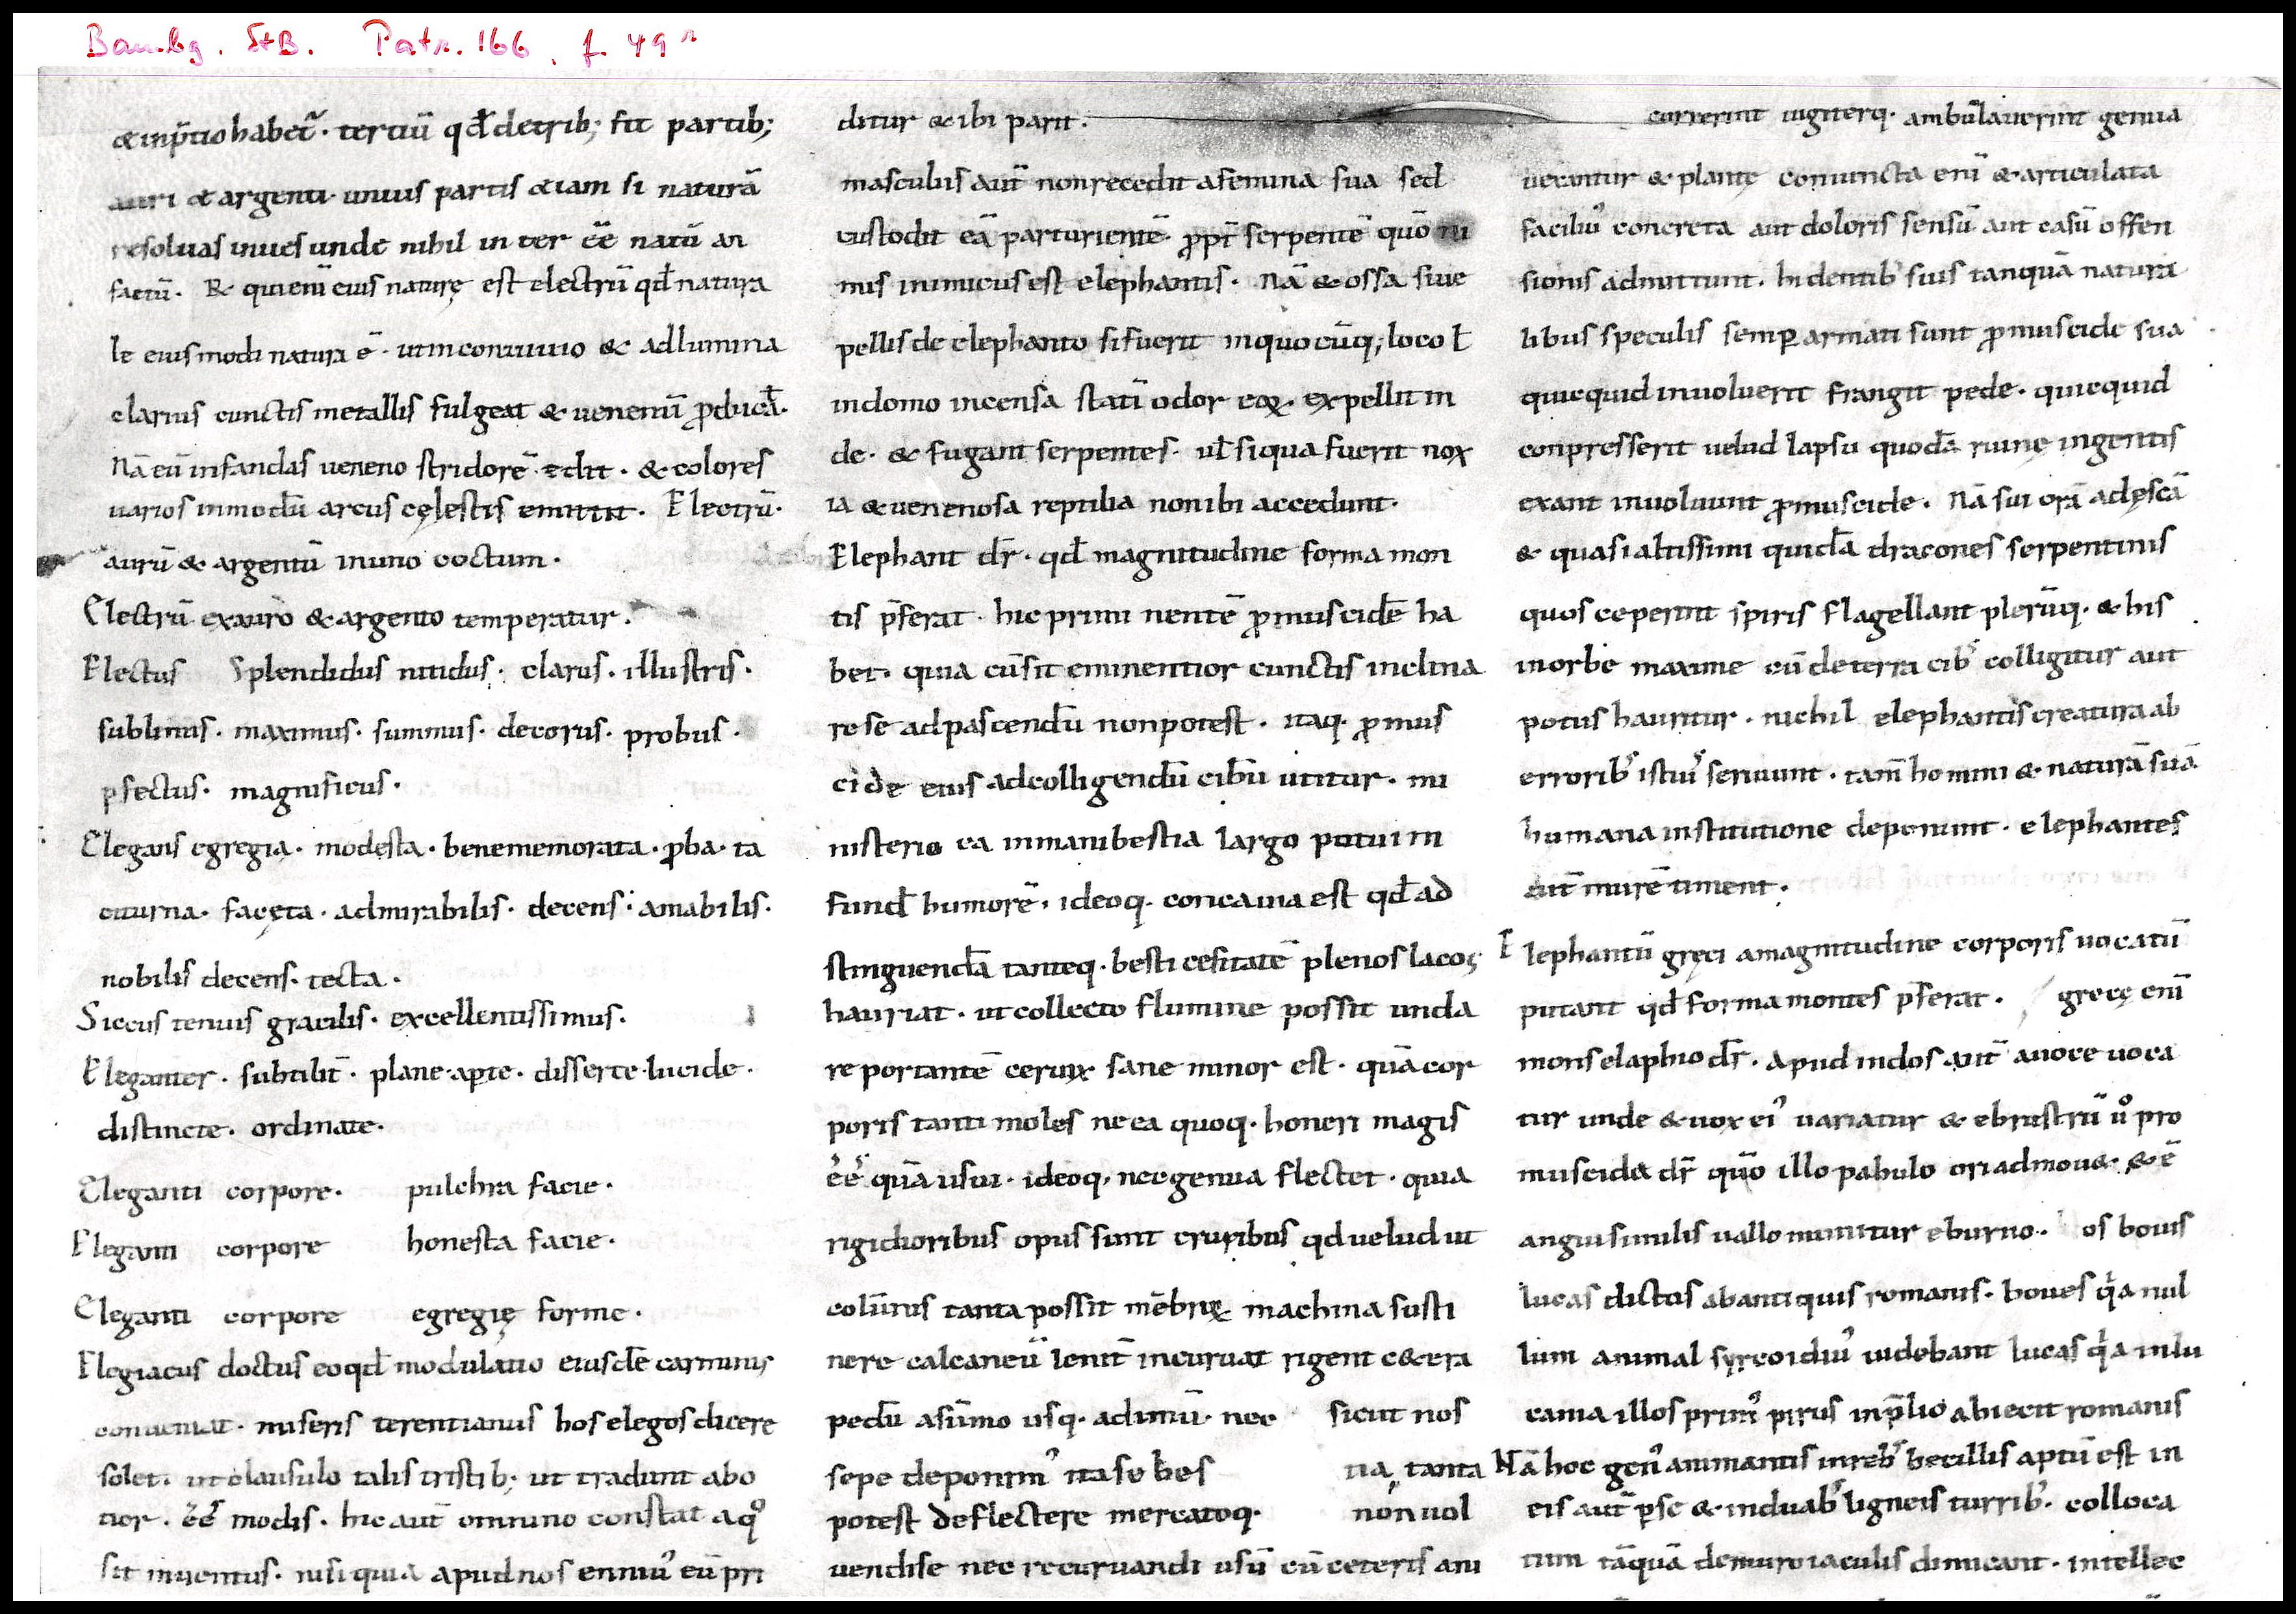 Bambg. StB. Patr. 166. f. 49r
& inp̄tio habet᷑. tertiū qđ detrib; fit partib;
auri & argenti. unius partis &iam si naturā
resoluas inues unde nihil inter ēē natū an
factū. & qui enī eius naturę est electrū qđ natura
le eiusmodi natura ē. ut in conuiuio & ad lumina
clarius cunctis metallis fulgeat & uenenū ꝓducā.
Nā eū infandas ueneno stridorē edit. & colores
uarios inmodū arcus cęlestis emittit. Electrū.
aurū & argentū inuno coctum.
Electrū exauro & argento temperatur.
Electus Splendidus nitidus. clarus. illustris.
sublimis. maximus. summus. decorus. probus.
ꝑfectus. magnificus.
Elegans egregia. modesta. benememorata. ꝓba. ta
citurna. facęta. admirabilis. decens. amabilis.
nobilis decens. tecta.
Siccus tenuis gracilis. excellentissimus.
Eleganter. subtilit̄. plane apte. disserte lucide.
distincte. ordinate.
Eleganti corpore. pulchra facie.
Eleganti corpore honesta facie.
Eleganti corpore egregię forme.
Elegiacus doctus eo qđ modulatio eiusdē carminis
conueniat. miseris terentianus hos elegos dicere
solet. ut clausulo talis tristib; ut tradunt abo
tior. ēē modis. hic aut̄ omnino constat aqͦ
sit inuentus. nisi quia apud nos enniuʼ eū pri
ditur & ibi parit.
masculus aut̄ nonrecedit afemina sua sed
custodit eā parturientē. ꝓpt̄ serpentē quō ni
mis inimicus est elephantis. Nā & ossa siue
pellis de elephanto si fuerit inquocūq; loco ł
indomo incensa statī odor eoꝝ. expellit in
de. & fugant serpentes. uł siqua fuerit nox
ia & uenenosa reptilia non ibi accedunt.
Elephant dr̄. qđ magnitudine forma mon
tis p̄ferat. hic primi nentē ꝓmuscidē ha
bet. quia cū sit eminentior cunctis inclina
re se adpascendū nonpotest. itaq. ꝓmus
cide eius adcolligendū cibū utitur. mi
nisterio ea inmani bestia largo potui in
fund̄ humorē. ideoq. concaua est qđ ad
stinguendā tanteq. besti cesitatē plenos lacos
hauriat. ut collecto flumine possit unda
re portantē ceruix sane minor est. quā cor
poris tanti moles ne ea quoq. honeri magis
ēē quā usui. ideoq. nec genua flectet. quia
rigidioribus opus sunt cruribus qđ uelud ut
colūnis tanta possit mēbroꝝ machina susti
nere calcaneū lenit̄ incuruat rigent c&era
pedū asūmo usq. adimū. nec sicut nos
sepe deponimʼ ita se bes tia tanta
potest deflectere mercatoq. non uol
uendise nec recuruandi usū cū ceteris ani
currerint iugiterq. ambulauerint genua
uexantur & plantę coniuncta enī & articulata
faciliuʼ concreta aut doloris sensū aut casū offen
sionis admittunt. hi dentibʼ suis tanquā natura
libus speculis semꝑ armati sunt ꝓmuscide sua
quicquid inuoluerit frangit pede. quicquid
conpresserit uelud lapsu quodā ruinę ingentis
exant inuoluunt ꝓmuscide. Nā sui orā adęscā
& quasi altissimi quidā dracones serpentinis
quos ceperint spiris flagellant plerūq. & his
inorbe maxime cū deterra cibʼ colligitur aut
potus hauritur. nichil elephantis creatura ab
erroribʼ istiuʼ seruiunt. tam̄ homini & naturā suā
humana institutione deponunt. elephantes
aut̄ murē timent.
Elephantū gręci amagnitudine corporis uocatū
putant qđ forma montes p̄ferat. grecę enī
mons elaphio dr̄. Apud indos aut̄ auoce uoca
tur unde & uox eiʼ uariatur & ebrustrū uͦ pro
muscida dr̄ quō illo pabulo ori admou&. & ē
angui similis uallo munitur eburno. os bouis
lucas dictos abantiquis romanis. boues qͥa nul
lum animal syrcoidiuʼ uidebant lucas qͥa inlu
cania illos primʼ pirus inp̄lio abiecit romanis
Nā hoc genʼ animantis inrebʼ becillis aptū est in
eis aut̄ ꝑse & induabʼ ligneis turribʼ. colloca
tum tāquā demuro iaculis dimicant. intellec